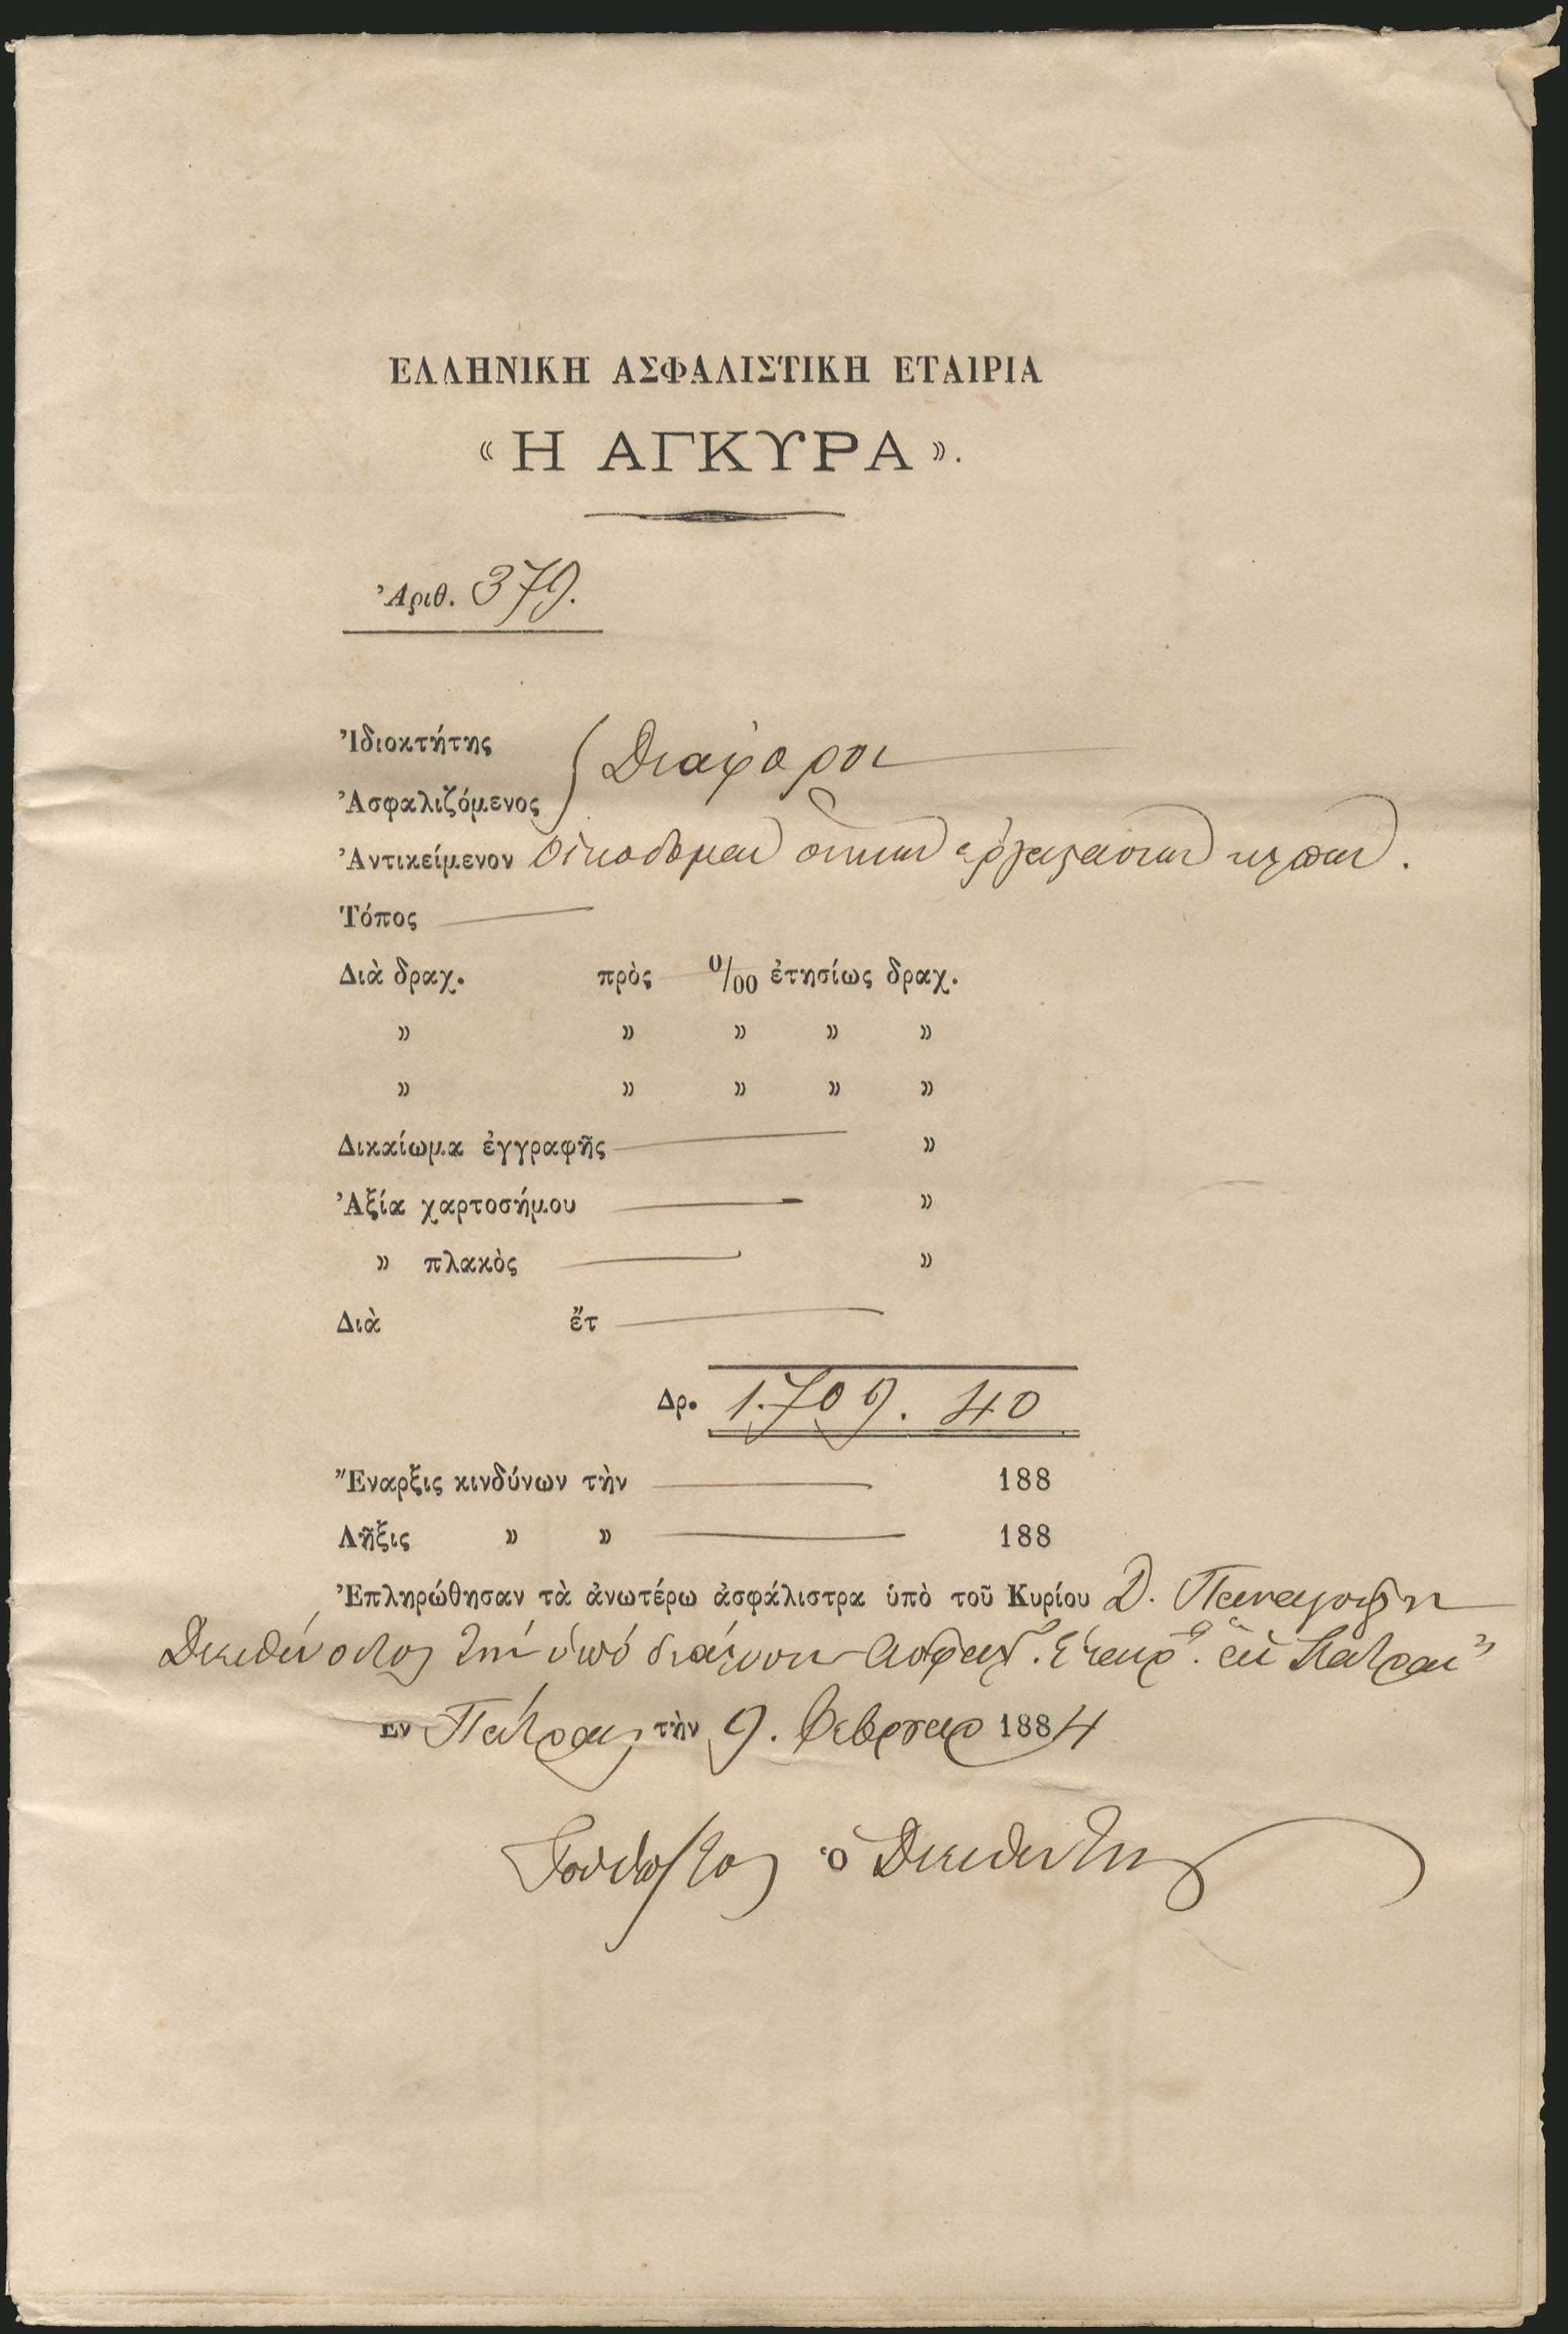 ΕΛΛΗΝΙΚΗ ΑΣΦΑΛΙΣΤΙΚΗ ΕΤΑΙΡΙΑ
« Η ΑΓΚΥΡΑ ».
Ἀριθ. 379.
Ἰδιοκτήτης
Διάφοροι
Ἀσφαλιζόμενος
Ἀντικείμενον οἰκοδομαὶ
Τόπος
Διὰ δραχ. πρὸς 0/00 ἐτησίως δραχ.
» » » » »
» » » » »
Δικαίωμα ἐγγραφῆς »
Ἀξία χαρτοσήμου »
» πλακὸς »
Διὰ ἔτ
Δρ. 1.709. 40
Ἔναρξις κινδύνων τὴν 188
Λῆξις » » 188
Ἐπληρώθησαν τὰ ἀνωτέρω ἀσφάλιστρα ὑπὸ τοῦ Κυρίου Δ.
Διευθύνοντος τὴν ὑπὸ
Ἐν Πάτραις τὴν 9. Φεβρουαρ 1884
ὁ Διευθυντης